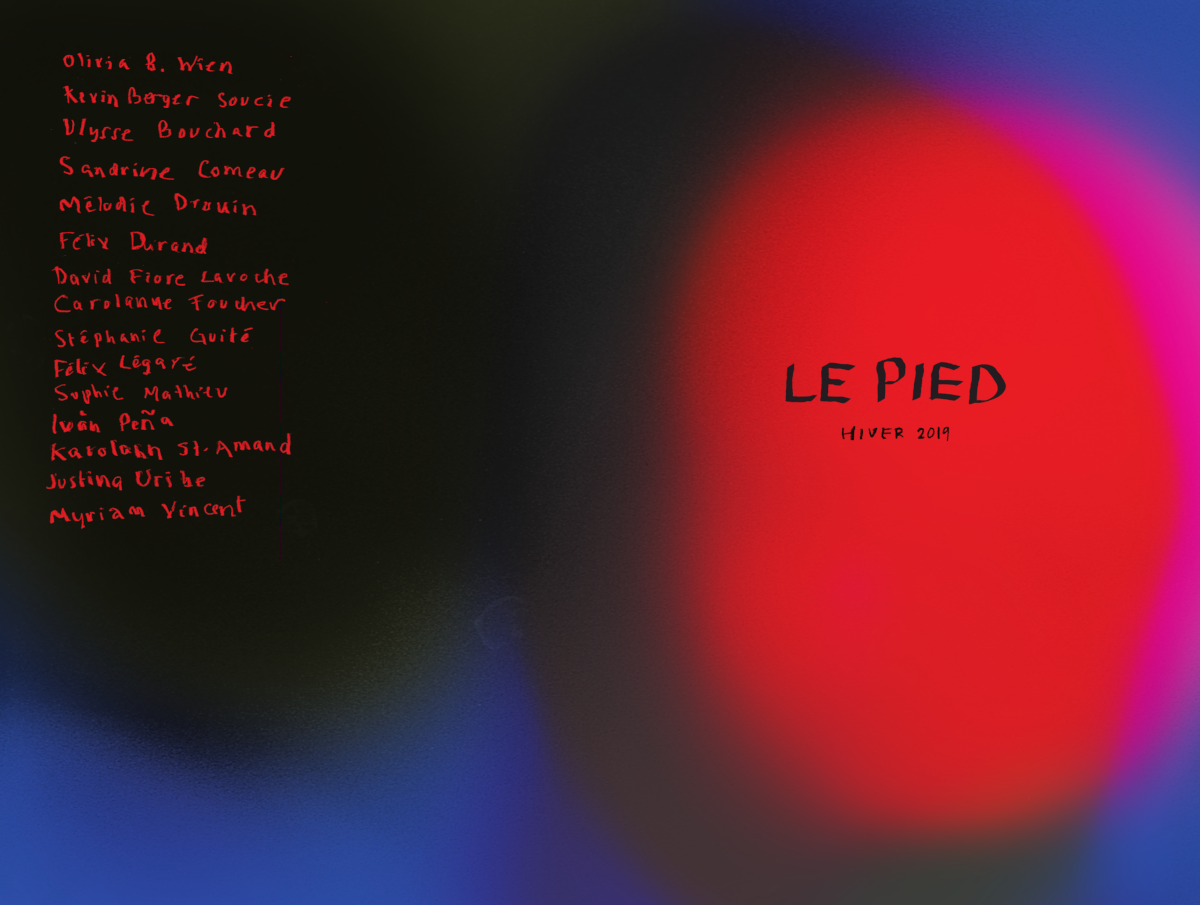 Olivia B. Wien
Kevin Berger Soucie
Ulysse Bouchard
Sandrine Comeau
Mélodie Drouin
Félix Durand
David Fiore Laroche
Carolanne Foucher
Stéphanie Guité
Félix Légaré
Sophie Mathieu
Iván Peña
Karolann St-Amand
Justina Uribe
Myriam Vincent
LE PIED
HIVER 2019